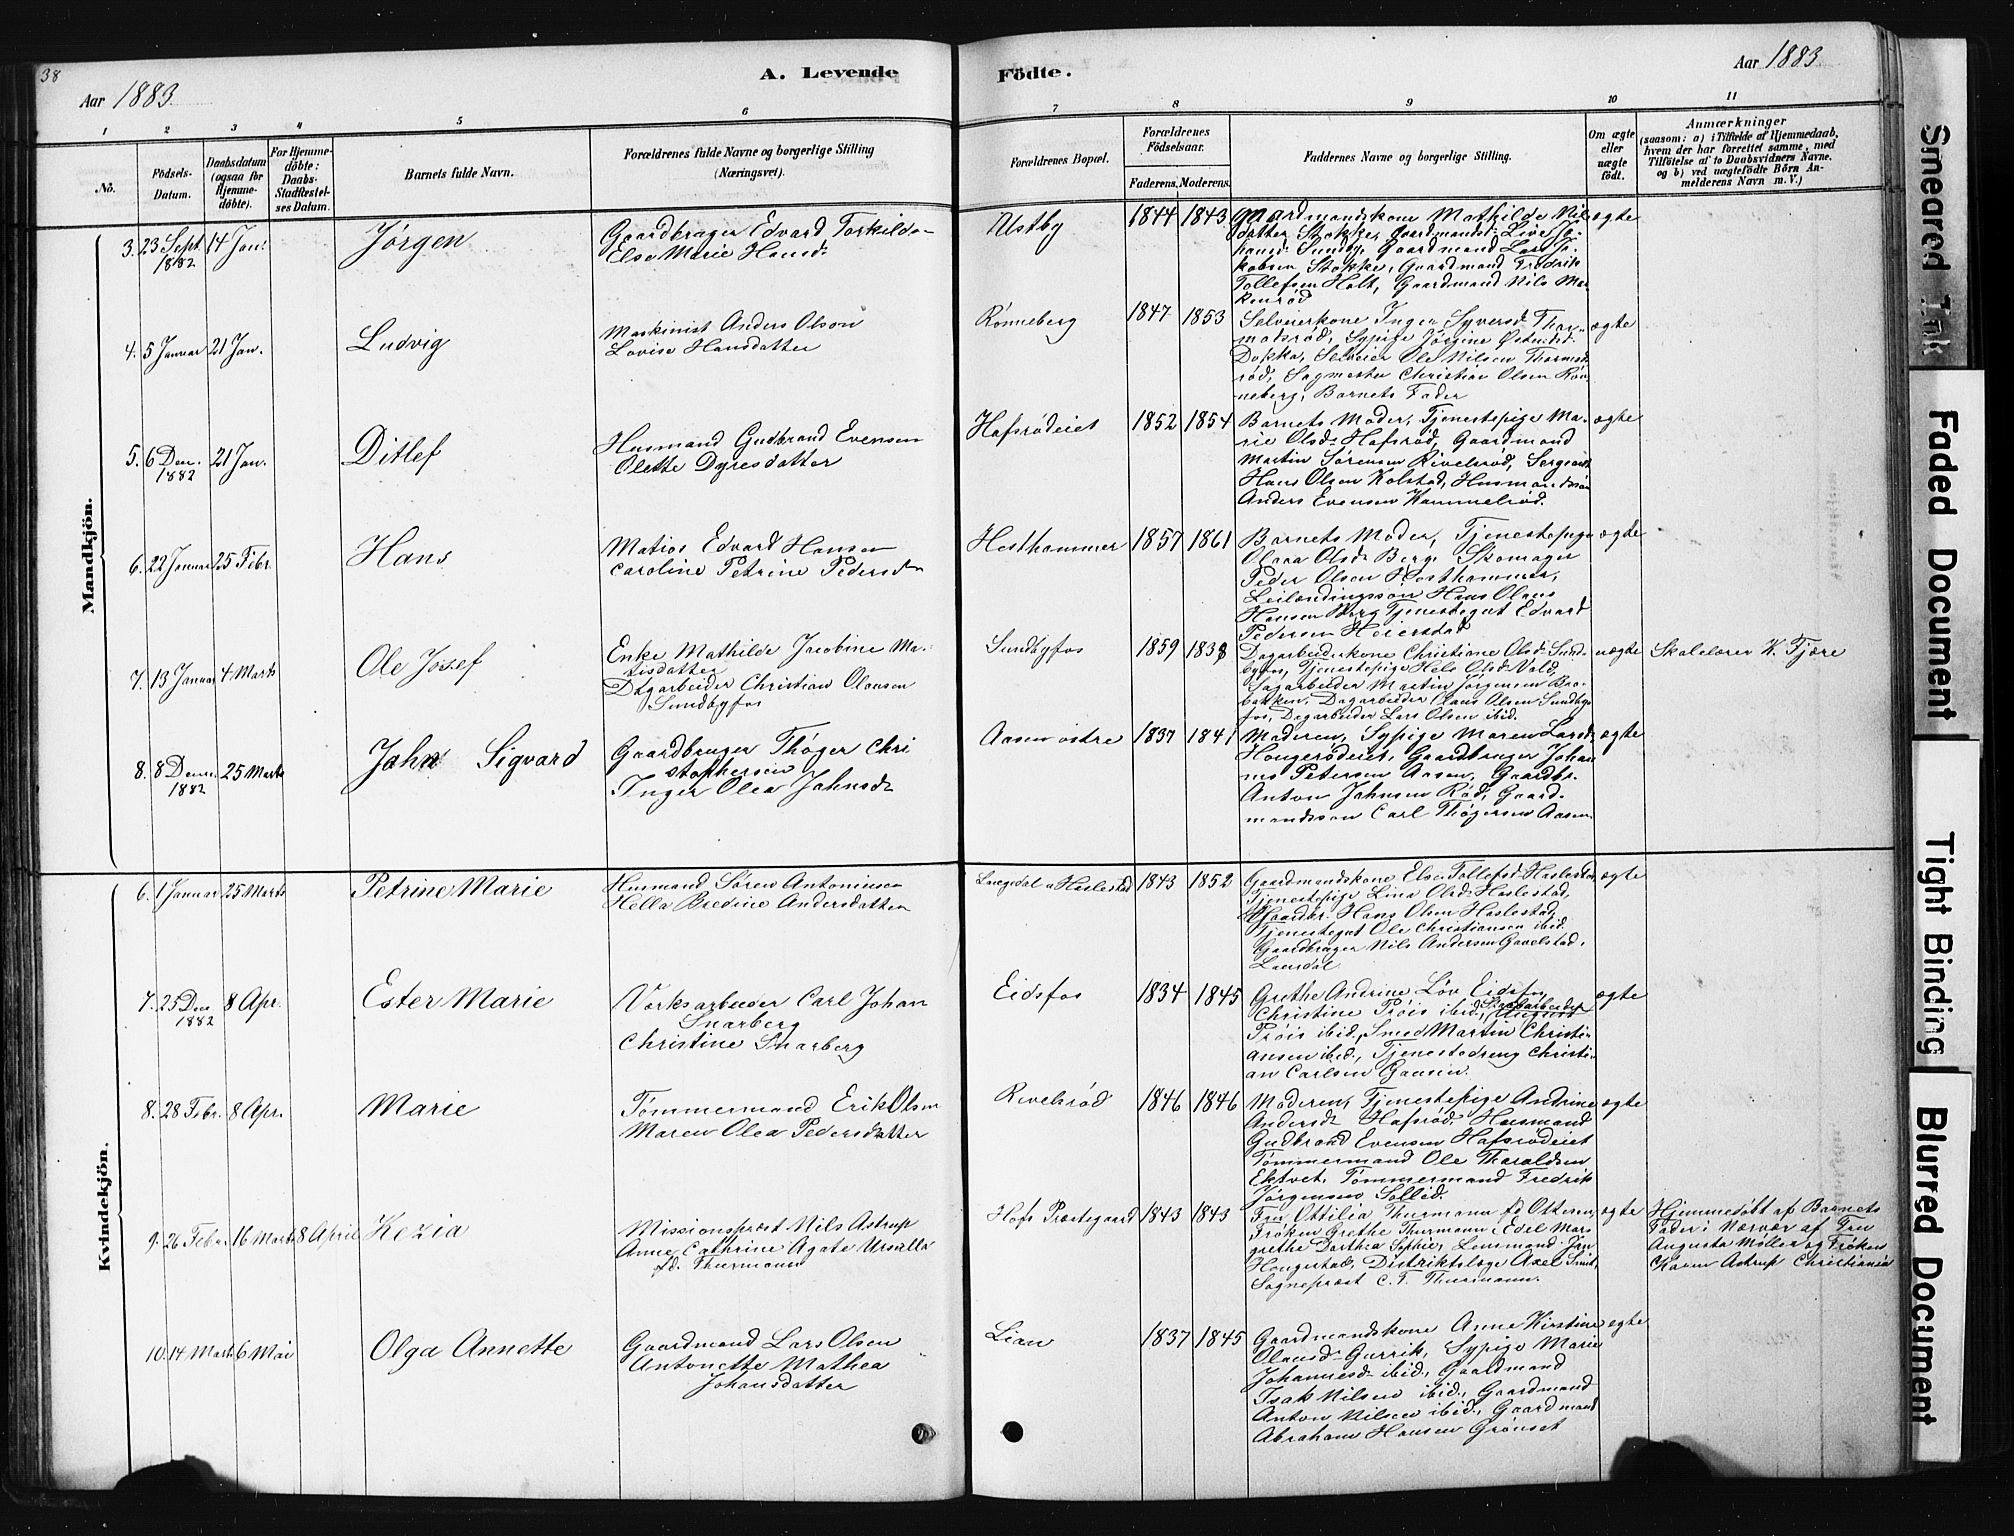 38
Aar 1883.
A. Levende
Födte.
Aar 1883
1 2 3 4 5 6 7 8 9 10 11
No.
Födsels-
Datum.
Daabsdatum
(ogsaa for
Hjemme-
döbte).
For Hjemme-
döbte:
Daabs-
Stadfæstel-
ses Datum.
Barnets fulde Navn.
Forældrenes fulde Navne og borgerlige Stilling
(Næringsvei).
Forældrenes Bopæl.
Forældrenes
Födselsaar.
Faderens. Moderens.
Faddernes Navne og borgerlige Stilling.
Om ægte
eller
uægte
födt.
Anmærkninger
(saasom: a) i Tilfælde af Hjemmedaab,
hvem der har forrettet samme, med
Tilföielse af to Daabsvidners Navne.
og b) ved uægtefödte Börn An-
melderens Navn m. V.)
Mandkjön.
3. 23 Sept 1882
14 Jan:
Jørgen
Gaardbruger Edvard Torkilds-
Else Marie Hansd:
Ustby
1844 1843
Gaardmandskone Mathilde Nils
datter Stokke, Gaardmandsd: Live Jo-
hansd: Sundby, Gaardmand Lars Ja-
kobsen Stokke, Gaardmand Fredrik
Tollefsen Holt, Gaardmand Nils
ægte
4. 5 Januar
21 Jan.
Ludvig
Maskinist Anders Olson
Lovise Hansdatter
Rønneberg
1847 1853
Selveierkone Inger Syversd Thor-
modsrød, Sypige Jørgine
Dokka, Selveier Ole Nilsen Thormods
rød, Sagmester Christian Olsen Røn-
neberg, Barnets Fader
ægte
5. 6 Dec. 1882
21 Jan.
Ditlef
Husmand Gudbrand Evensen
Olette Dyresdatter
Hafsrødeiet
1852 1854
Barnets Moder, Tjenestepige Ma-
rie Olsd: Hafsrød, Gaardmand
Martin Sørensen Rivelsrød, Sergeant
Hans Olsen Kolstad, Husmandssøn
Anders Evensen Hammelrød.
ægte
6. 22 Januar
25 Febr
Hans
Matios Edvard Hansen
Caroline Petrine Pedersd
Hesthammer
1857 1861
Barnets Moder, Tjenestepige
Olava Olsd: Berg, Skomager
Peder Olsen Hesthammer,
Leilændingssøn Hans Olaus
Hansen Berg, Tjenestegut Edvard
Pedersen Heierstad
ægte
7. 13 Januar
4 Marts
Ole Josef
Enke Mathilde Jacobine Ma-
tisdatter
Dagarbeider Christian Olausen
Sundbyfos
Sundbyfos
1859 1838
Dagarbeiderkone Christiane Olsd: Sund-
byfos, Tjenestepige Hele Olsd: Vald,
Sagarbeider Martin Jørgensen Bra-
bakken, Dagarbeider Claus Olsen Sundby-
fos, Dagarbeider Lars Olsen ibid.
uægte
Skolelærer K. Fjære
8. 8 Decm. 1882
25 Marts
Jahn Sigvard
Gaardbruger Thøger Chri
stophersen
Inger Olea Jahnsd:
Aasen østre
1837 1841
Moderen, Sypige Maren Larsd:
Haugerødeiet, Gaardbruger Johan
nes Petersen Aasen, Gaardbr.
Anton Jahnsen Rød, Gaard-
mandssøn Carl Thøgersen Aasen.
ægte
Kvindekjön.
6. 1 Januar
25 Marts
Petrine Marie
Husmand Søren Antonisen
Hella Bredine Andersdatter
Langedal u Haslestad
1843 1852
Gaardmandskone Else Tollefsd: Haslestad,
Tjenestepige Lina Olsd: Haslestad,
Gaardbr. Hans Olsen Haslestad,
Tjenestegut Ole Christiansen ibid.
Gaardbruger Nils Andersen Gavelstad,
ægte
7. 25 Dec 1882
8 Apr.
Ester Marie
Verksarbeider Carl Johan
Snarberg
Christine Snarberg
Eidsfos
1834 1845
Grethe Andrine Løv Eidsfos
Christine Prøis ibid, August
Prøis ibid., Smed Martin Christi-
ansen ibid., Tjenestedreng Christi-
an Carlsen Gaasen.
ægte
8. 28 Febr.
8 Apr.
Marie
Tømmermand Erik Olsen
Maren Olea Pedersdatter
Rivelsrød
1846 1846
Moderen, Tjenestepige Andrine
Andersd: Hafsrød, Husmand
Gudbrand Evensen Hafsrødeiet
Tømmermand Ole Tharaldsen
Ektvet, Tømmermand Fredrik
Jørgensen Sollid.
ægte
9. 26 Febr.
16 Mart
8 April
Kezia
Missionsprest Nils Astrup
Anne Cathrine Agate Ursulla
fd. Thurmann
Hofs Præstegaard
1843 1843
Fru Ottilia Thurmann fd Ottesen,
Frøken Grethe Thurmann, Edel Mar-
grethe Dorthea Sophie, Lensmand Jan
Haugestad, Distriktslæge Axel Smit,
Sogneprest C. F. Thurmann.
ægte
Hjemmedøbt af Barnets
Fader i Nærvær af Fru
Augusta Møller og Frøken
Karen Astrup Christiania
10. 14 Marts
6 Mai
Olga Annette
Gaardmand Lars Olsen
Antonette Mathea
Johansdatter
Lian
1837 1845
Gaardmandskone Anne Kirstine
Olausd: Gurrik, Sypige Marie
Johannesd: ibid., Gaardmand
Isak Nilsen ibid., Gaardmand
Anton Nilsen ibid., Gaardmand
Abraham Hansen Grønset
ægte
Smeared Ink
Faded Document
Tight Binding
Blurred Document